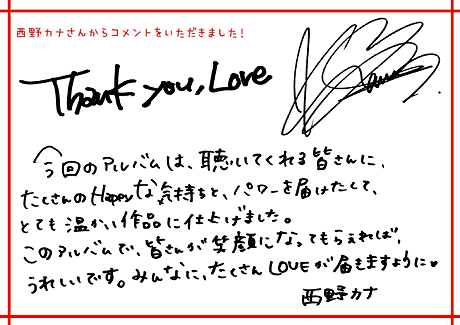 西野カナさんからコメントをいただきました!
Thank you, Love
今回のアルバムは、聴いてくれる皆さんに、
たくさんのHappyな気持ちと、パワーを届けたくて、
とても温かい作品に仕上げました。
このアルバムで、皆さんが笑顔になってもらえれば、
うれしいです。みんなに、たくさんLOVEが届きますように♥
西野カナ